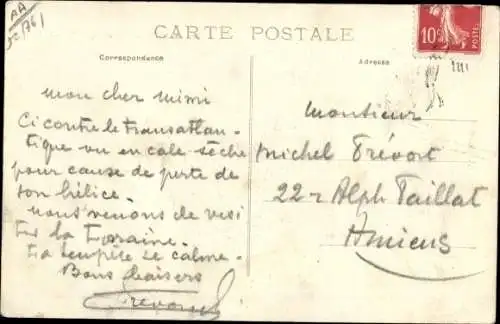 AA
CARTE POSTALE
Correspondance
Adresse
10c
POSTES
mon cher mimi
Ci contre le transatlan-
tique vu en cale sèche
pour cause de perte de
son hélice.
nous venons de visi
ter la Lorraine.
La tempête se calme.
Bons baisers
Monsieur
michel Trévort
22 r Alph Paillat
Amiens